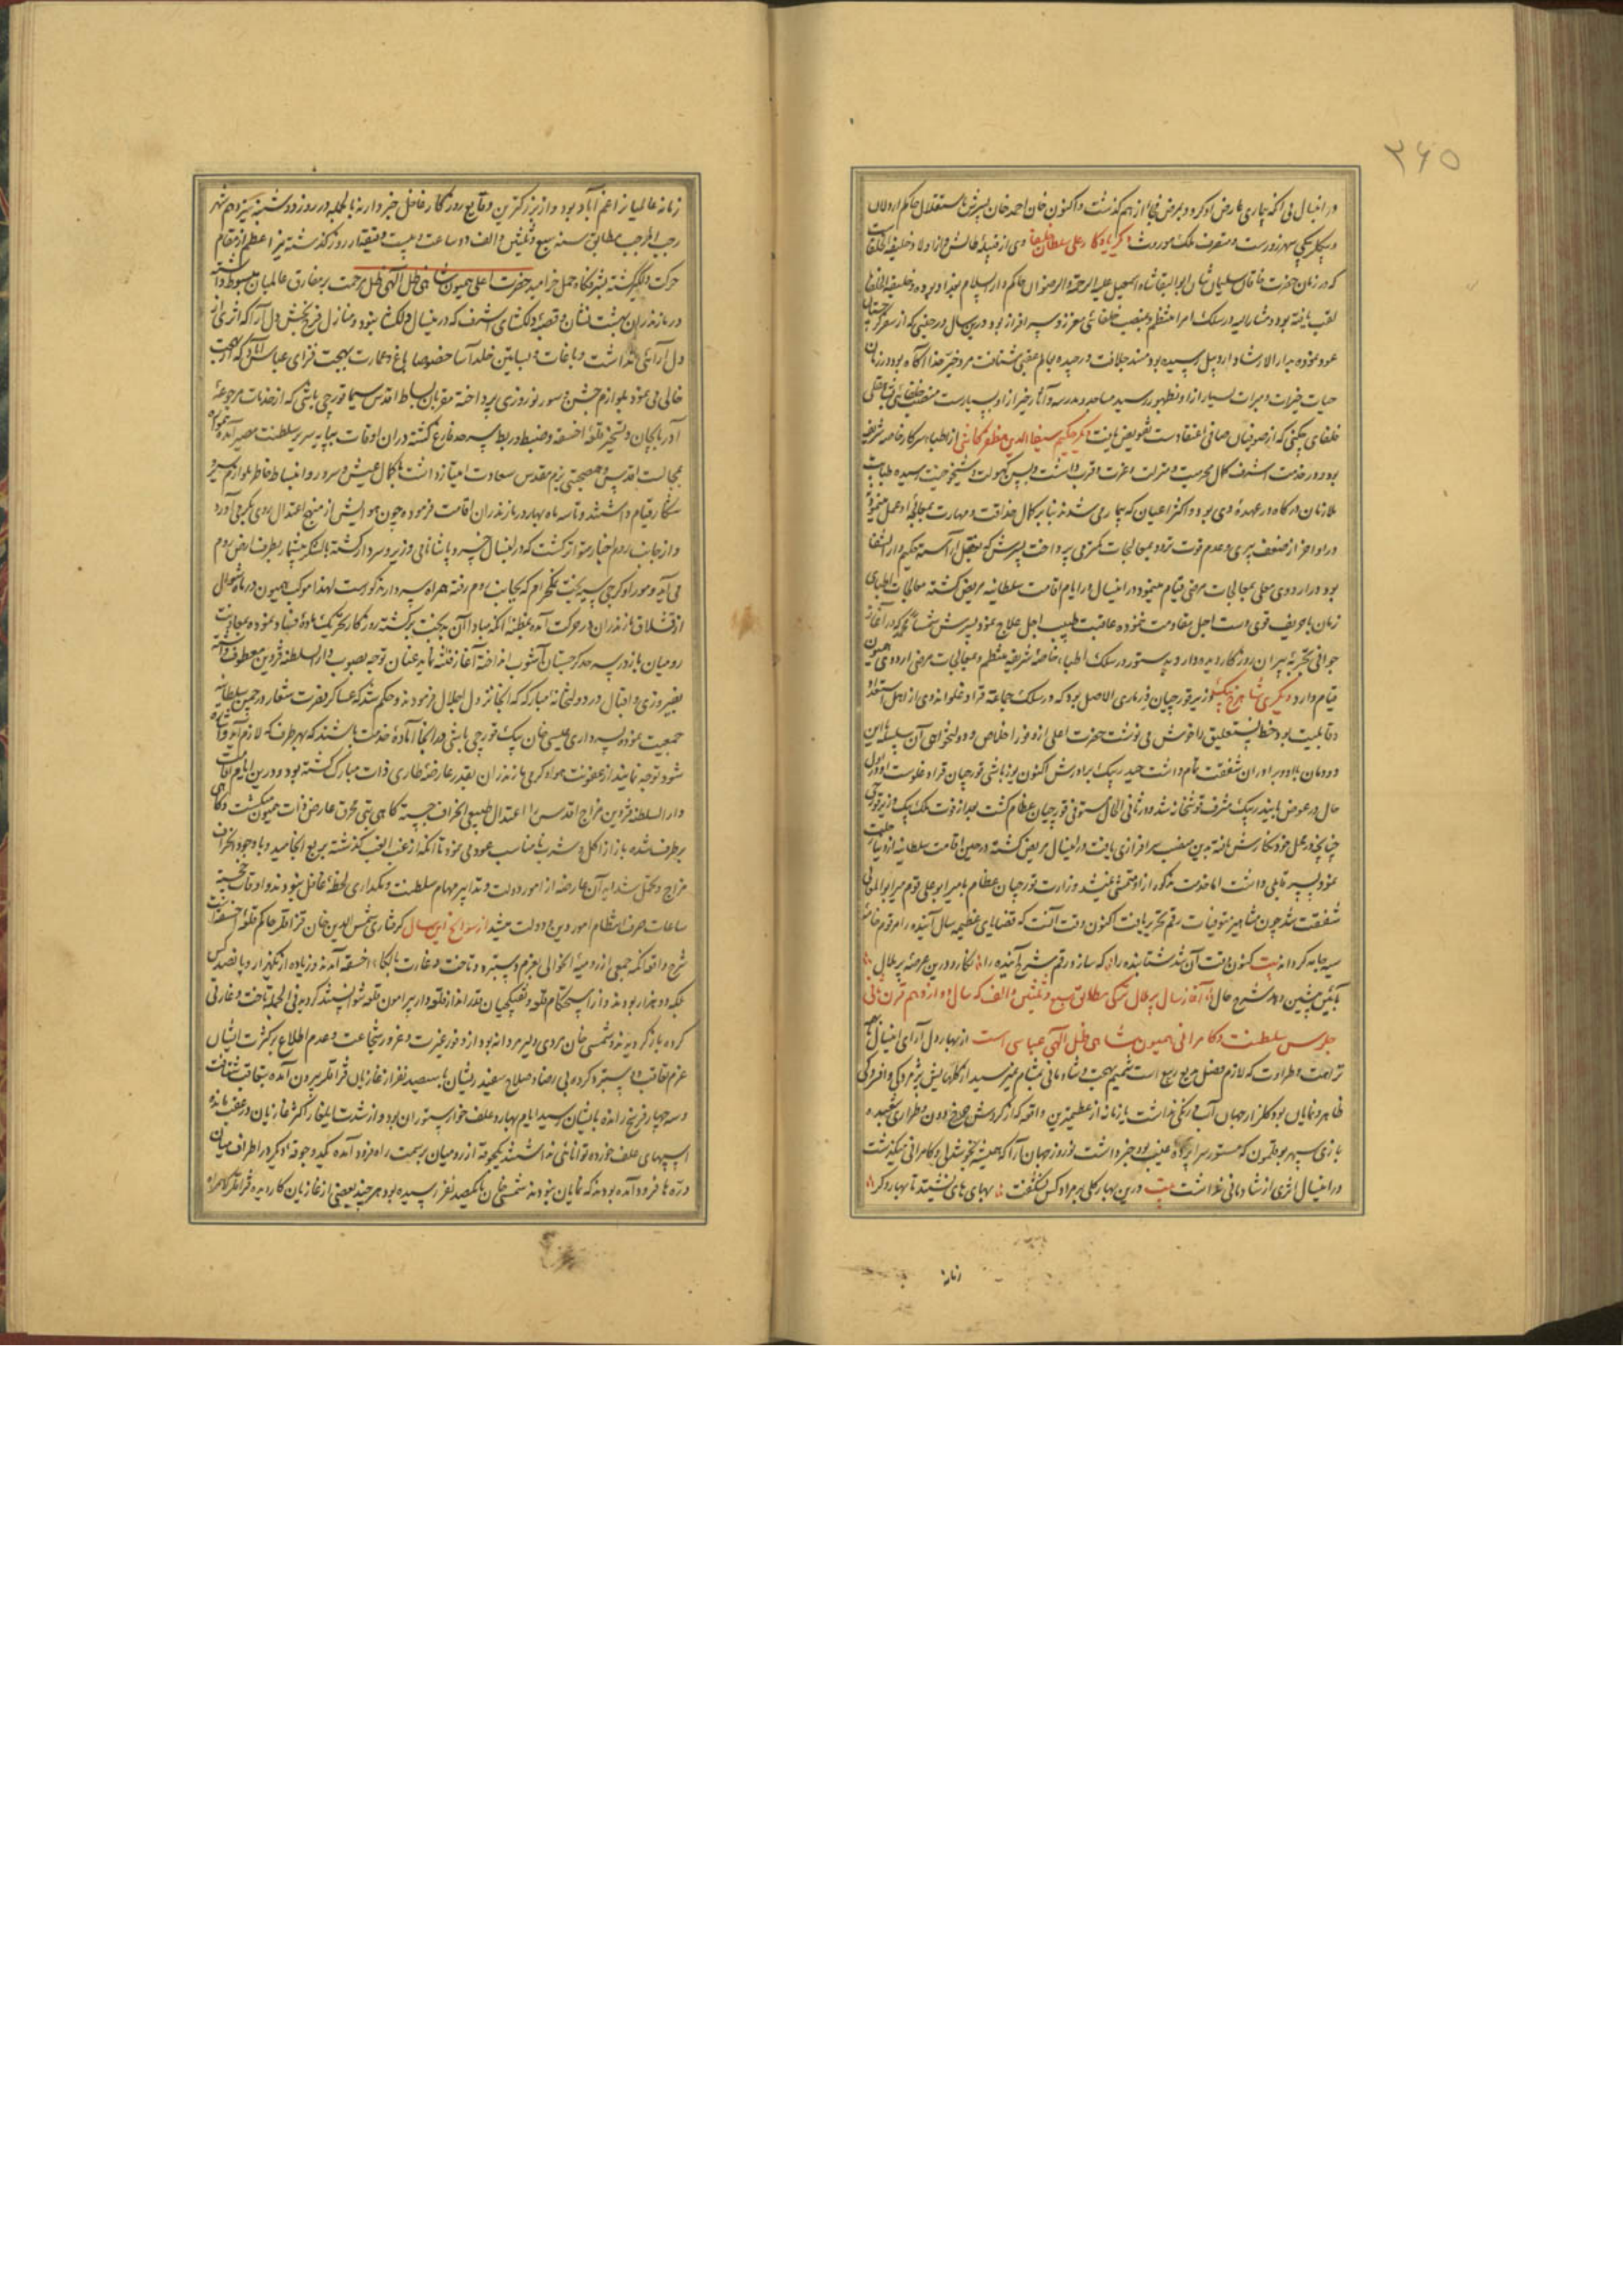 ۲۶۵
در اینسال بی آنکه بیماری عارض او گردد بمرض فجاء از هم گذشت و اکنون خان احمد خان پسرش باستقلال حاکم اردلان
و بیگلربیگی شهرزورست و متصرف ملک موروث دیگر یادگار علی سلطان خلفا وی از قبیله طالش و از اولاد خلیفة الخلفاست
که در زمان حضرت خاقان سلیمان شان ابو البقا شاه اسمعیل علیه الرحمة و الرضوان حاکم دار السلام بغداد بوده و خلیفة الخلفا
لقب یافته بود و مشار الیه در سلک امرا منتظم و بمنصب خلفائی معزز و سرافراز بود درین سال در حینی که از سفر گرجستان
عود نموده بدار الارشاد اردبیل رسیده بود مسند خلافت درچیده بعالم عقبی شتافت مرد خیر خدا آگاه بود در زمان
حیات خیرات و مبرات بسیار از او بظهور رسید مساجد و مدرسه و آثار خیر از او بسیارست منصب خلفائی
خلفای چکنی که از صوفیان صافی اعتقادست تفویض یافت دیگر حکیم سیفا الدین مظفر کاشی از اطباء سرکار خاصه شریفه
بود و در خدمت اشرف کمال محرمیت و منزلت و عزت و قرب داشت و بسن کهولت و شیخوخیت رسیده طبابت
ملازمان درگاه در عهدهٔ وی بود و اکثر اعیان که بیمار می شدند بنا بر کمال حذاقت و مهارت بمعالجهٔ او عمل مینمودند
در اواخر از ضعف پیری و عدم قوت تردد بمعالجات کمتر می پرداخت پسرش که بعقل آراسته حکیم دار الشفا
بود در اردوی معلی بمعالجات مرضی قیام مینمود در اینسال در ایام اقامت سلطانیه مریض گشته معالجات اطبای
زمان با حریف قوی دست اجل مقاومت ننموده عاقبت طبیب اجل علاج نمود پسرش که در آغاز
جوانی تجربهٔ پیران روزگار دیده دارد بدستور در سلک اطباء خاصهٔ شریفه منتظم و بمعالجات مرضی اردوی همیون
قیام دارد دیگری شاهرخ بیک وزیر قورچیان ذرماری الاصل بود که در سلک جماعة قراداغلو اندوی از اهل استعداد
و قابلیت بود خط نستعلیق را خوش می نوشت حضرت اعلی از وفور اخلاص و دولتخواهی آن سلسله باین
دودمان بالا و برادران شفقت تمام داشت حیدر بیک برادرش اکنون یوزباشی قورچیان قراداغلوست او در اول
حال در عوض بایندر بیک مشرف قوشخانه شد و در ثانی الحال مستوفی قورچیان عظام گشت بعد از فوت ملک بیک وزیر قورچی
چنانچه در محل خود نگارش یافته بدین منصب سرافرازی یافت در اینسال مریض گشته در حین اقامت سلطانیه از دنیا رحلت
نمود پسر قابلی داشت اما خدمت مذکور از او متمشی نمیشد وزارت قورچیان عظام بامیر ابو علی قوم میر ابو المعالی
شفقت شد چون مشاهیر متوفیات رقم تحریر یافت اکنون وقت آنست که قضایای عظیمه سال آینده را مرقوم خامهٔ
سیه جامه گرداند بیت کنون وقت آن شد شتابنده را که سازد رقم شرح آینده را نگارد درین عرصه بر طال
بآئین پیشین دهد شرح حال آغاز سال پر ملال ترکی مطابق سبع و ثلثین و الف که سال دوازدهم قرن ثانی
جلوس سلطنت و کامرانی همیون شاهی ظل اللهی عباسی است از بهار دل آرای اینسال
نزاهت و طراوت که لازم فصل ربیع است شمیم بهجت و شادمانی بمشام نمیرسید از گلهایش پژمردگی و افسردگی
ظاهر و نمایان بود گلزار جهان آب و رنگی نداشت یا زمانه از عظیمترین واقعه که از گردش چرخ دون و طراری شعبده
بازی سپهر بوقلمون که مستور سراپردهٔ غیب بود خبر داشت نوروز جهان آرا که همیشه بخوشدلی و کامرانی میگذشت
در اینسال اثری از شادمانی نداشت بیت درین بهار گلی بر مراد کس نشکفت بهای های نشیند تا بهار دگر
زمانه
زمانه عالمیان از اعم آباد بود و از بزرگترین وقایع روزگار غافل خبر دارند بالجمله در روز دوشنبه سیزدهم شهر
رجب المرجب مطابق سنه سبع و ثلثین و الف دو ساعت و بیست دقیقه از روز گذشته نیر اعظم از مقام
حرکت دلگیر گشته بنزهتگاه حمل خرامید حضرت اعلی همیون شاهی ظل اللهی ظل مرحمت بر مفارق عالمیان مبسوط داشته
در مازندران بهشت نشان و قصبهٔ دلگشای اشرف که در اینسال دلگشا نبود و منازل فرح بخش دل آرا که اثری از
دل آرائی نداشت و باغات و بساتین خلد آسا خصوصا باغ و عمارت بهجت فزای عباس آباد که از بهجت
خالی می نمود بلوازم جشن و سور نوروزی پرداخته مقربان بساط اقدس سیما قورچی باشی که از خدمات مرجوعهٔ
آذربایجان و تسخیر قلعهٔ اخسقه و ضبط و ربط سرحد فارغ گشته در آن اوقات بپایه سریر سلطنت مصیر آمده همواره
بمجالست اقدس و همصحبتی بزم مقدس سعادت امتیاز داشت بکمال عیش و سرور و انبساط خاطر بلوازم سیر و
شکار قیام داشتند و تا سه ماه بهار در مازندران اقامت فرموده چون هوایش از منهج اعتدال روی بگرمی آورد
و از جانب روم اخبار متواتر گشت که در اینسال خسرو پاشا نامی وزیر و سردار گشته با لشکر بیشمار بطرف ارض روم
می آید و موراو گرجی سیه بخت نمکحرام که بجانب روم رفته همراه سردار مذکورست لهذا موکب همیون در ماه شوال
از قشلاق مازندران در حرکت آمده بمظنهٔ آنکه مبادا آن بدبخت برگشته روزگار تحریک مادهٔ فساد نموده بمعاونت
رومیان باز در سرحد گرجستان آشوب انداخته آغاز فتنه نماید عنان توجه بصوب دار السلطنه قزوین معطوف داشته
بفیروزی و اقبال در دولتخانه مبارکه که آنجا نزول اجلال فرمودند و حکم شد که عساکر نصرت شعار در چمن سلطانیه
جمعیت نموده بسرداری عیسی خان بیک قورچی باشی در آنجا آمادهٔ خدمت باشند که بهر طرف که لازم آید
شود توجه نمایند از عفونت هوا و گرمی مازندران بقدر عارضهٔ طاری ذات مبارک گشته بود و درین ایام اقامت
دار السلطنه قزوین مزاج اقدس را اعتدال طبیعی انحراف جسته گاهی تبی محرق عارض ذات همیون میگشت و گاهی
برطرف شده باز از اکل و شرب نامناسب عود می نمود تا آنکه از غب الغب گذشته بربع انجامید و با وجود انحراف
مزاج و شداید آن عارضه از امور دولت و تدابیر مهام سلطنت و ملکداری لحظهٔ غافل نبودند و اوقات خجسته
ساعات صرف انتظام امور دین و دولت میشد از سوانح این سال گرفتاری شمس الدین خان قزاقلر حاکم قلعهٔ اخسقه است
شرح واقعه آنکه جمعی از رومیهٔ آنحوالی بعزم دستبرد و تاخت و غارت بالکاء اخسقه آمدند و زیاده از یکهزار و پانصد کس
بلکه دو هزار بودند و از استحکام قلعه و تفنگچیان قدرانداز قلعه دار پیرامون قلعه نتوانستند گردید فی الجمله تاخت و غارتی
کرده باز گردیدند و شمسی خان مردی دلیر مردانه بود از وفور غیرت و غرور شجاعت و عدم اطلاع بر کثرت ایشان
عزم تعاقب و دستبرد کرده بی رضا و صلاح سفید ریشان با سیصد نفر از غازیان قزاقلر بیرون آمده بتعاقب شتافت
و سه چهار فرسخ رانده بایشان رسید ایام بهار و علف خوار ستوران بود و از شدت ایلغار اکثر غازیان در عقب مانده
اسبهای علف خورده توانائی نداشتند یکجوقه از رومیان بر سمت راه فرود آمده یکدو جوقهٔ دیگر در اطراف میان
درّه ها فرود آمده بودند که نمایان نبودند شمسی خان با یکصد نفر رسیده بود هر چند بعضی از غازیان کاردیده قزاقلر